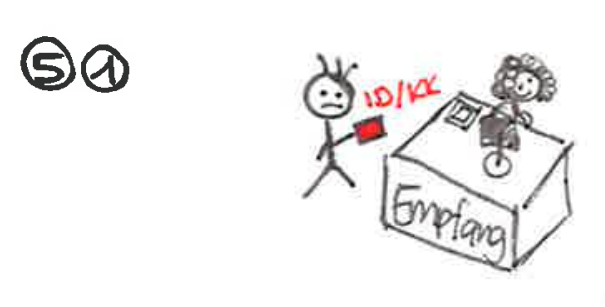 S 1
ID/KK
Empfang